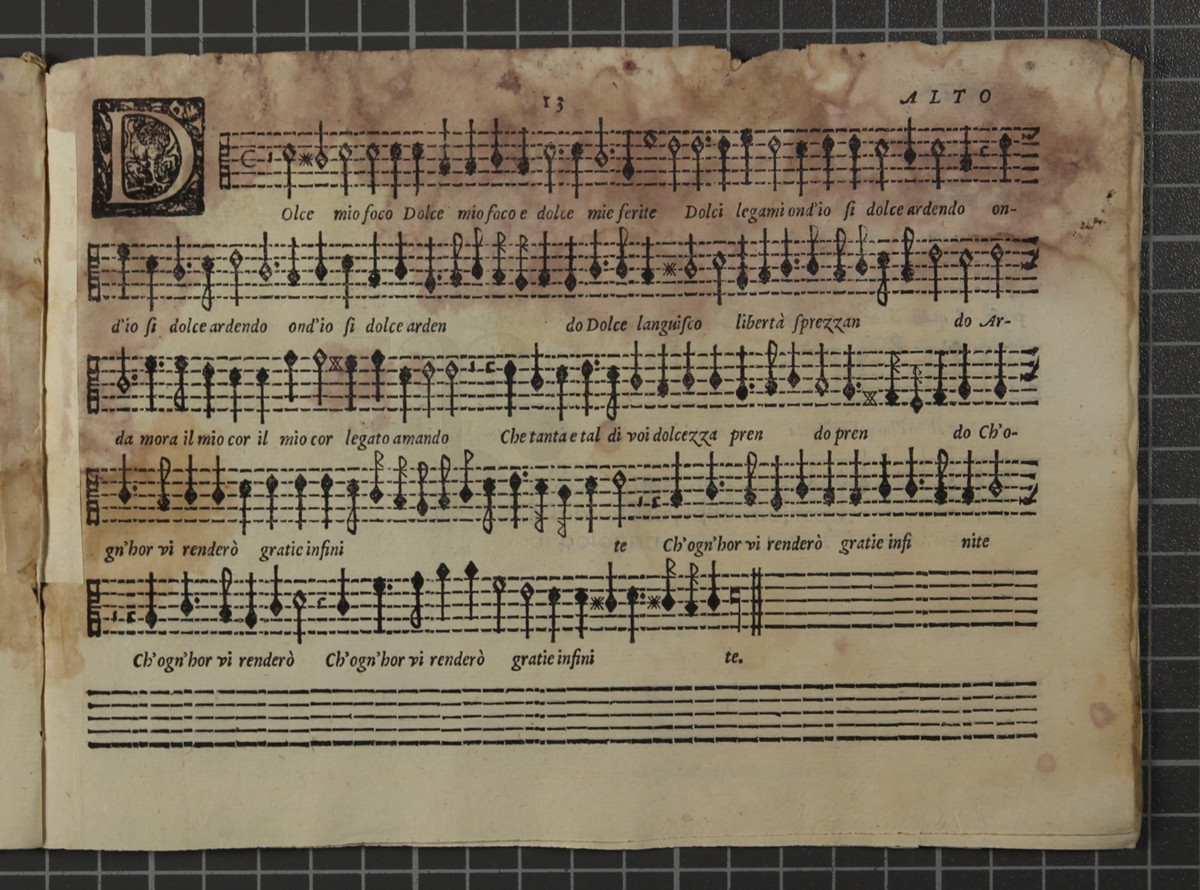 13 ALTO
DOlce mio foco Dolce mio foco e dolce mie ferite Dolci legami ond'io ſi dolce ardendo on-
d'io ſi dolce ardendo ond'io ſi dolce arden do Dolce languiſco libertà ſprezzan do Ar-
da mora il mio cor il mio cor legato amando Che tanta e tal di voi dolcezza pren do pren do Ch'o-
gn'hor vi renderò gratie infini te Ch'ogn'hor vi renderò gratie infi nite
Ch'ogn'hor vi renderò Ch'ogn'hor vi renderò gratie infini te.